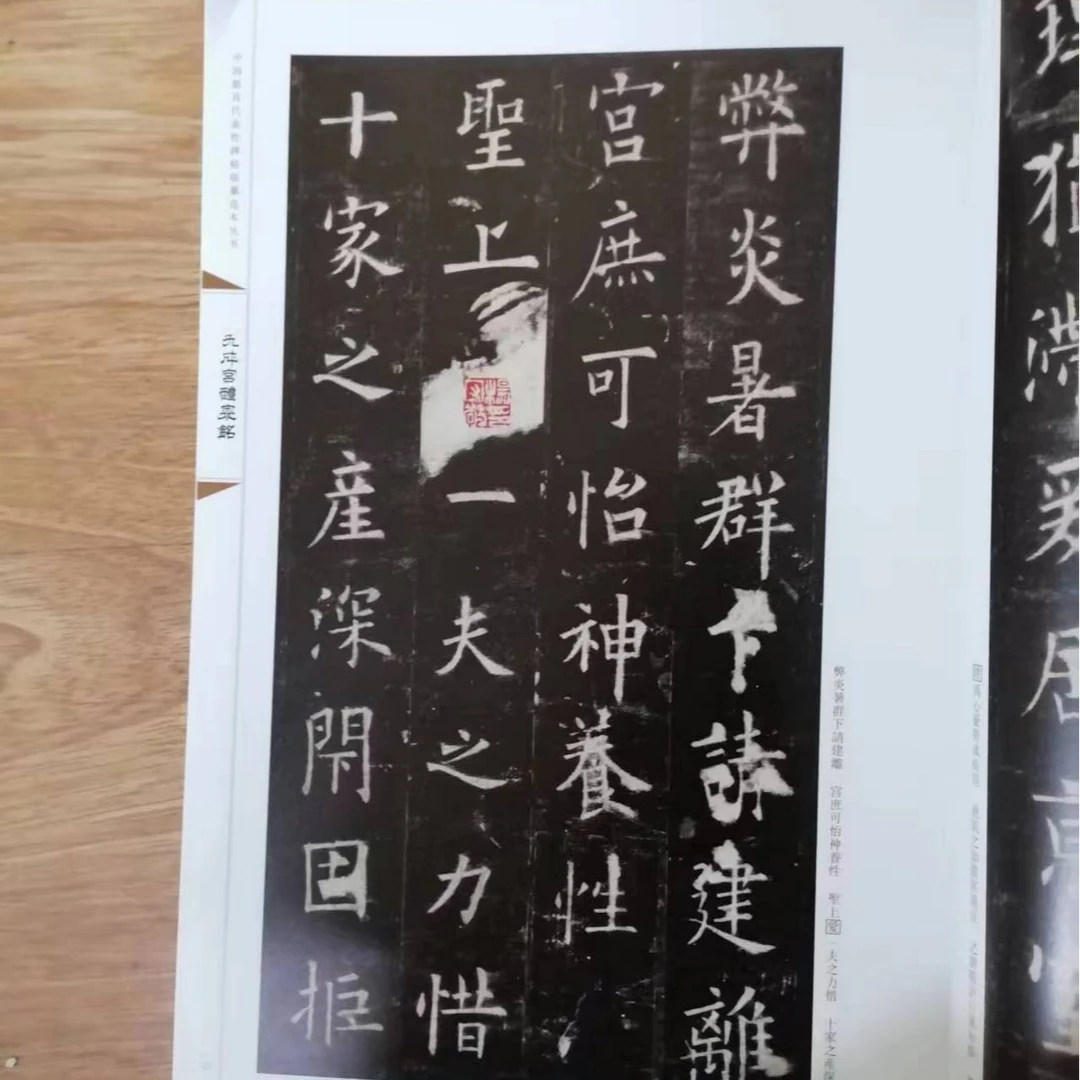 理猶滯爰居京
弊炎暑群下請建離
宮庶可怡神養性
聖上一夫之力惜
十家之產深閇固拒
弊炎暑群下請建離 宮庶可怡神養性 聖上愛一夫之力惜 十家之產深
中国最具代表性碑帖临摹范本丛书
九成宮醴泉銘